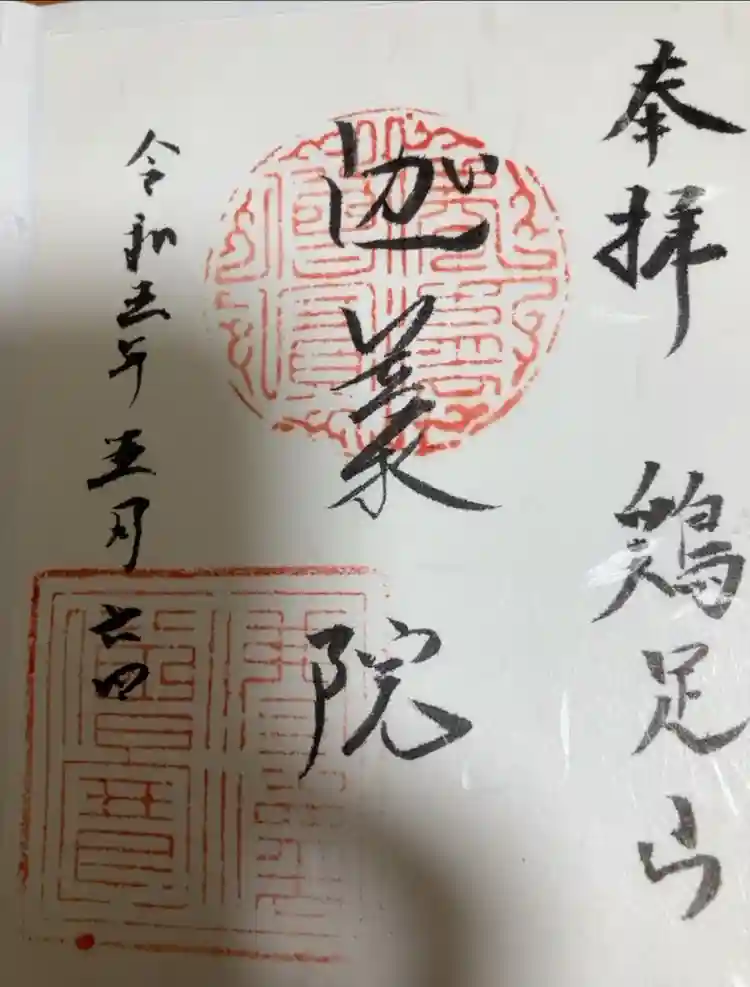 奉拝 鶏足山
迦葉院
令和五年五月六日